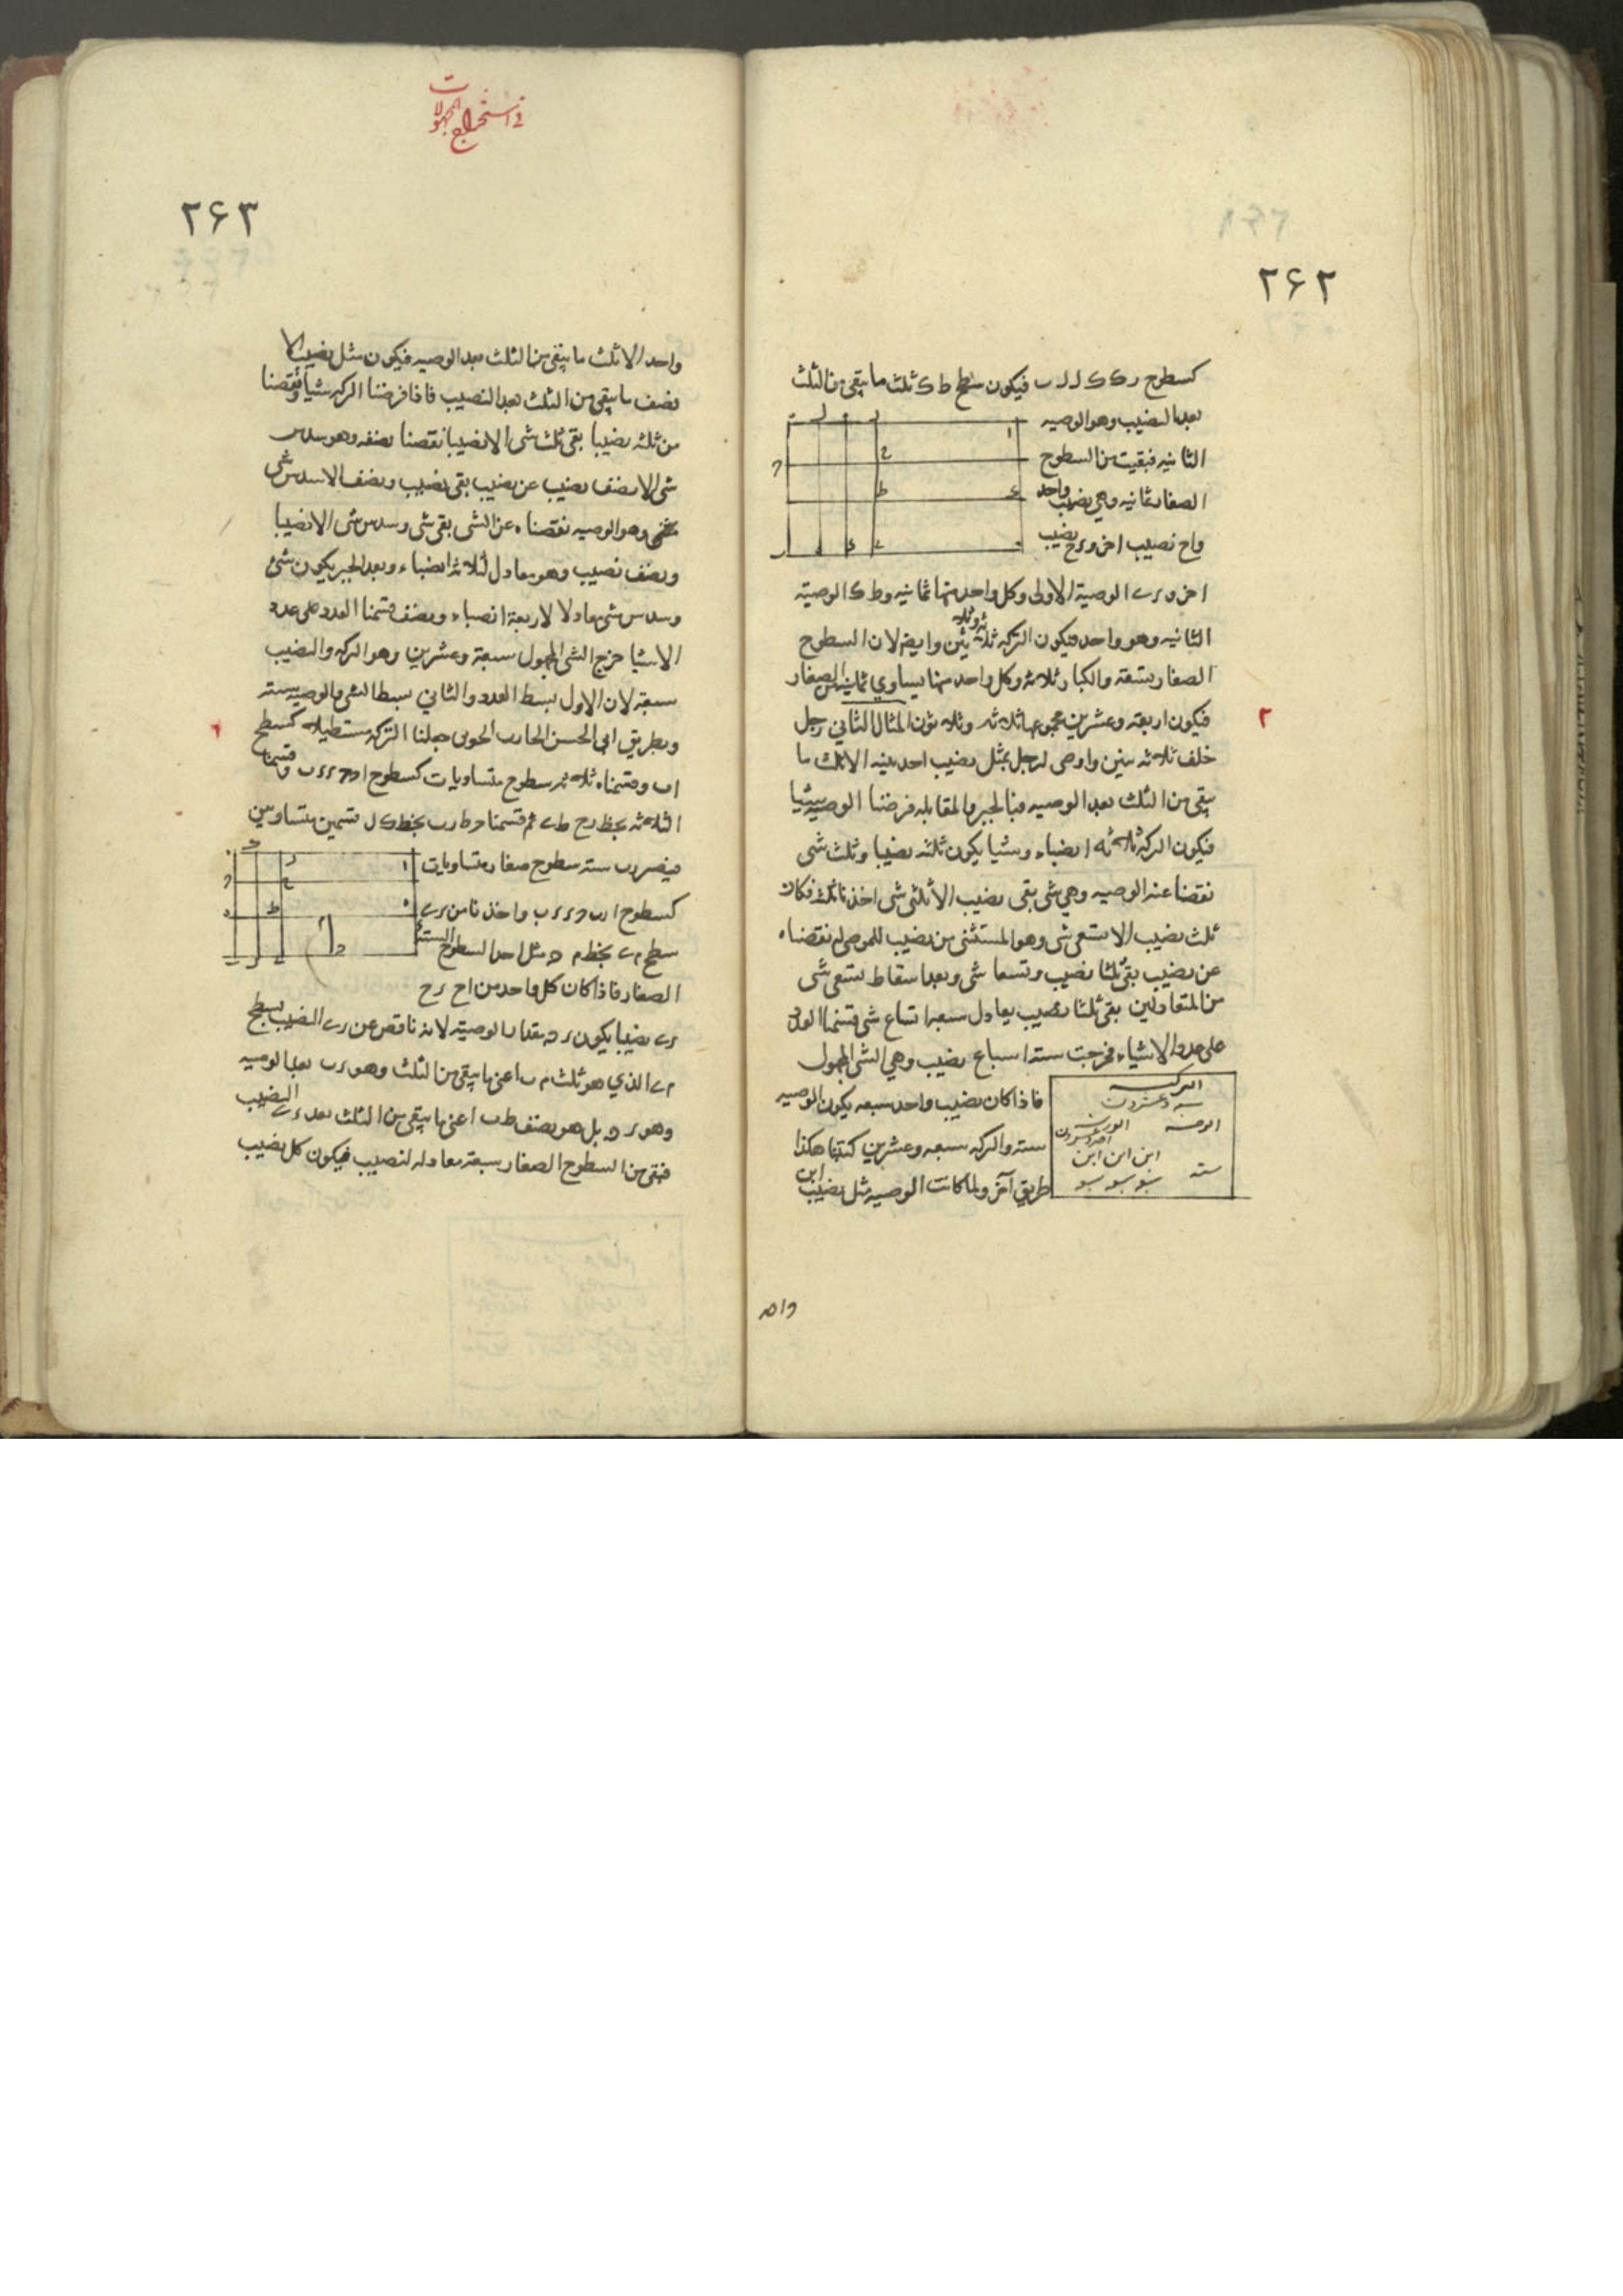 ٢۶٢
كسطوح ر ك ك ل ل ب فيكون سطح ط ك ثلث ما يبقى من الثلث
بعد النصيب وهو الوصيه
الثانيه فبقيت من السطوح
الصغار ثمانيه وهي نصيب واحد
واح نصيب اخر و ر ح نصيب
اخر و ر ى الوصية الاولى وكل واحد منها ثمانيه و ط ك الوصية
الثانيه وهو واحد فيكون التركه ثلاثة وثلاثين وايضا لان السطوح
الصغار تسعة والكبار ثلاثه وكل واحد منها يساوي ثمانية من الصغار
فيكون اربعة وعشرين مجموعها ثلاثه وثلاثون المثال الثاني رجل
٢
خلف ثلاثه بنين واوصى لرجل بمثل نصيب احد بنيه الا ثلث ما
يبقى من الثلث بعد الوصيه فبالجبر والمقابله فرضنا الوصيه شيئا
فيكون التركه ثلاثه انصباء وشيئا يكون ثلثه نصيبا وثلث شى
نقصنا عنه الوصيه وهي شى بقى نصيب الا ثلثى شى اخذنا ثلثه فكان
ثلث نصيب الا تسعى شى وهو المستثنى من نصيب للموصى له نقصناه
عن نصيب بقى ثلثا نصيب وتسعا شى وبعد اسقاط تسعى شى
من المتعادلين بقى ثلثا نصيب يعادل سبعة اتساع شى قسمنا العدد
على عدد الاشياء فخرجت ستة اسباع نصيب وهي الشى المجهول
فاذا كان نصيب واحد سبعه يكون الوصيه
سته والتركه سبعه وعشرين كتبنا هكذا
طريق آخر ولما كانت الوصيه مثل نصيب ابن
التركه
سبعه وعشرون
الوصيه الورثه
احد وعشرون
ابن ابن ابن
سته سبع سبع سبع
واحد
في استخراج المجهولات
٢۶٣
واحد الا ثلث ما يبقى من الثلث بعد الوصيه فيكون مثل نصيب الا
نصف ما يبقى من الثلث بعد النصيب فاذا فرضنا التركه شيئا ونقصنا
من ثلثه نصيبا بقى ثلث شى الا نصيبا نقصنا نصفه وهو سدس
شى الا نصف نصيب عن نصيب بقى نصيب ونصف الا سدس شى
وهو الوصيه نقصناه عن الشى بقى شى وسدس شى الا نصيبا
ونصف نصيب وهو معادل لثلاثة انصباء وبعد الجبر يكون شى
وسدس شى معادلا لاربعة انصباء ونصف قسمنا العدد على عدد
الاشيا خرج الشى المجهول سبعة وعشرين وهو التركه والنصيب
سبعة لان الاول بسط العدد والثاني بسط الشى والوصيه سته
وبطريق ابى الحسن الحارب الخوبى جعلنا التركه مستطيلا كسطح
اب وقسمناه ثلاثه سطوح متساويات كسطوح وقسمنا
الثلاثه بخط ر ح ط ى ثم قسمنا بخط ك ل قسمين متساويين
فيصير ر ب سته سطوح صغار متساويات
كسطوح واخذنا من ر ى
سطح م ى بخط م ه مثل احد السطوح الستة
الصغار فاذا كان كل واحد من ا ح ر ح
ر ى نصيبا يكون ر ه مقدار الوصية لانه ناقص عن ر ى النصيب بسطح
م ى الذي هو ثلث م ب اعنى ما يبقى من الثلث وهو ر ب بعد الوصيه
وهو ر ه بل هو نصف ط ب اعنى ما يبقى من الثلث بعد ر ى النصيب
فبقى من السطوح الصغار سبعة معادله لنصيب فيكون كل نصيب